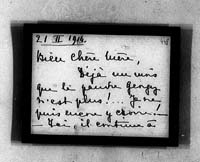 21 II 1916.
Bien chère mère,
Déjà un mois
que le pauvre Georgy
n'est plus!... Je ne
puis encore y croire...
Ici, il continue à